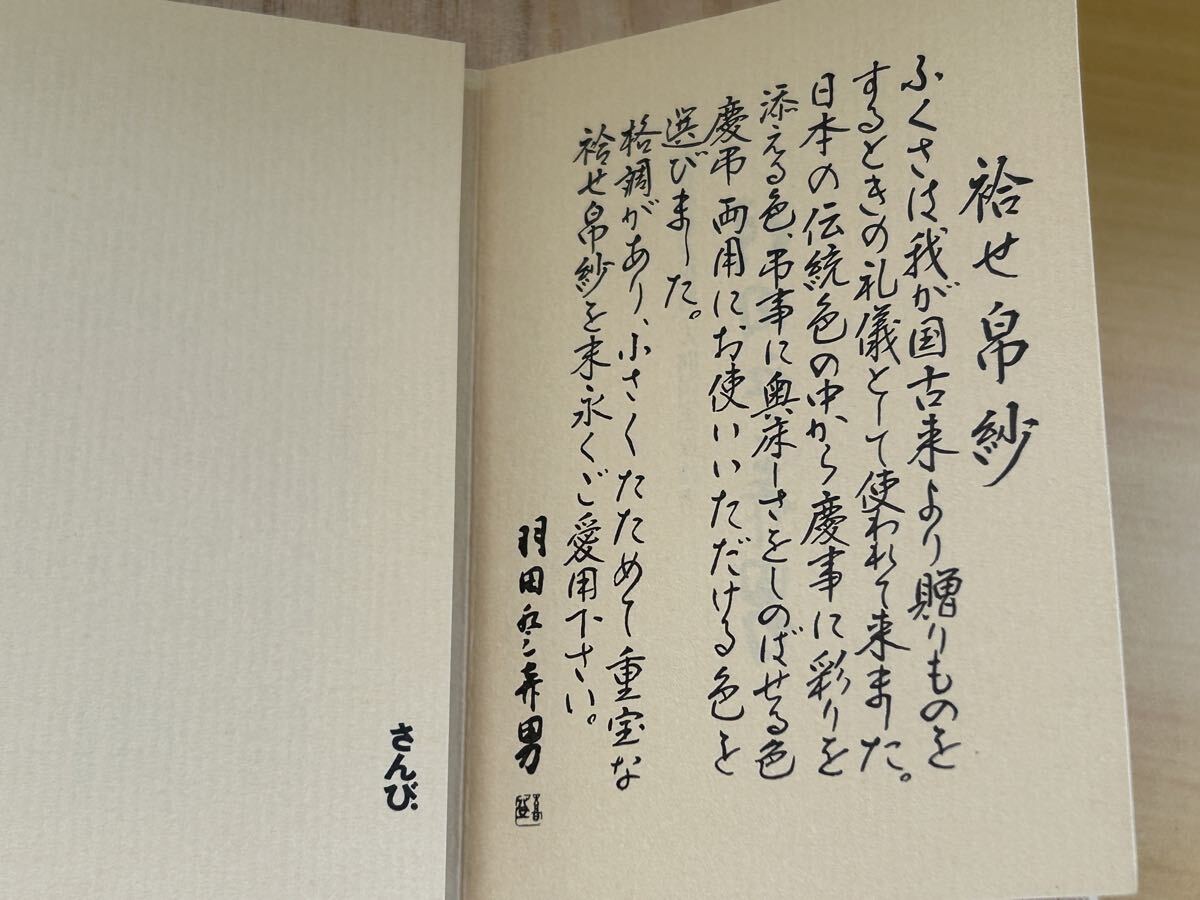 袷せ帛紗
ふくさは我が国古来より贈りものを
するときの礼儀として使われて来ました。
日本の伝統色の中から慶事に彩りを
添える色、弔事に奥床しさをしのばせる色
慶弔両用に、お使いいただける色を
選びました。
格調があり、小さくたためて重宝な
袷せ帛紗を末永くご愛用下さい。
羽田登喜男
さんび